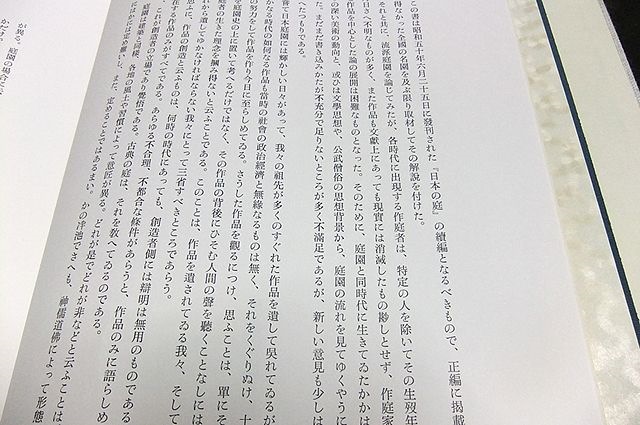 この書は昭和五十年六月二十五日に發刊された『日本の庭』の續編となるべきもので、正編に掲載
得なかった全國の名園を及ぶ限り取材してその解説を付けた。
それと共に、流派庭園を論じてみたが、各時代に出現する作庭者は、特定の人を除いてその生歿年
さへ不明なものが多く、また作品も文獻上にあっても現實には消滅したもの尠しとせず、作庭家
作品を中心とした論の展開は困難なものとなった。そのために、庭園と同時代に生きてゐたかかは
の深い美術の動向と、或ひは文學思想や、公武僧俗の思想背景から、庭園の流れを見てゆくやうに
た。まだまだ書き込みたかが不充分で足りないところが多く不滿足であるが、新しい意見も少しは
へたつもりである。
日本庭園には輝かしい日々があって、我々の祖先が多くのすぐれた作品を遺して呉れてゐるが
かなる時代の如何なる作品も當時の社會の政治經濟と無緣なるものは無く、それをくぐりぬけ、十
の努力をして作品を作り今日に至らしめてゐる。さうした作品を觀るにつけ、思ふことは、單にそ
を庭園史の上に置いて考へるだけではなく、その作品の背後にひそむ人間の聲を聽くことなしには
庭者の生きた理念を摑み得ないと云ふことである。このことは、作品を遺されてゐる我々、そして
れから遺してゆかなければならない我々にとって三省すべきところであらう。
思ふに、作品の創造と云ふものは、何時の時代にあっても、創造者側には辯明は無用のものである
在する作品のみがすべてである。あらゆる不合理、不都合な條件があらうと、作品のみに語らしめ
これが創造者の立場であり覺悟である。古典の庭は、それを教へてゐるのである。
庭園は建築と同様、各地の風土や習慣によって意匠が異る。どれが是でどれが非などと云ふことは
また、定めることではあるまい。かの洋池でさへも、神儒道佛によって形態
が異る。庭園の場合